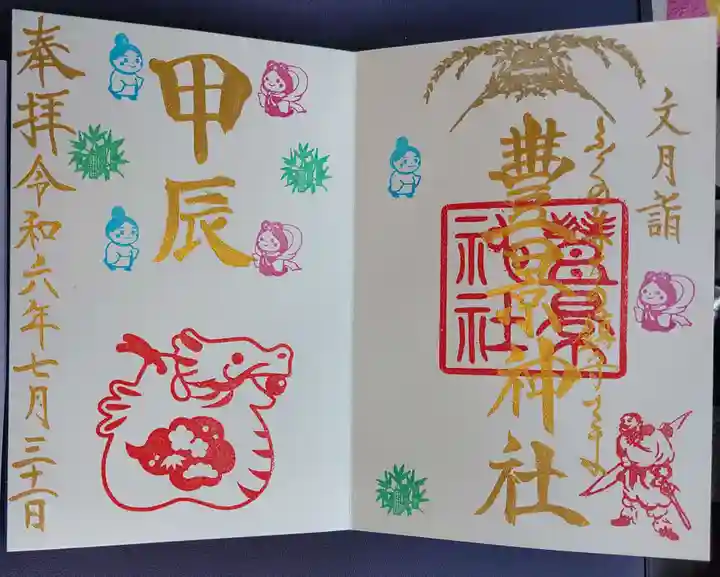 文月詣
豊景神社
豊景神社
甲辰
奉拝令和六年七月三十一日